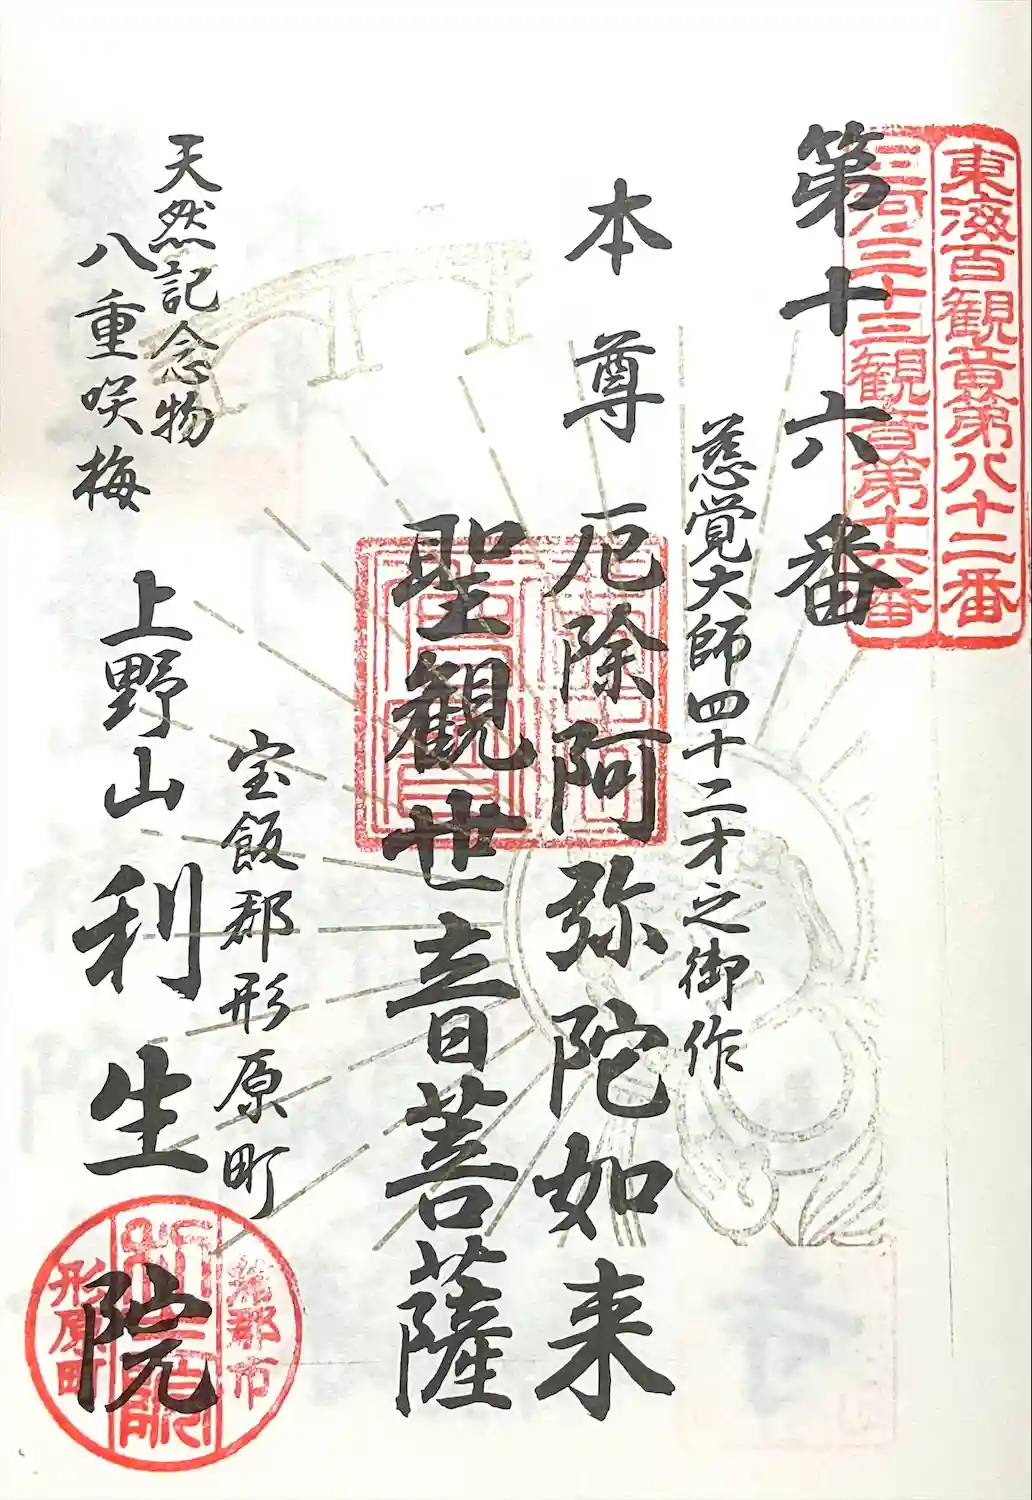 東海百観音第八十二番
三河三十三観音第十六番
第十六番
慈覚大師四十二才之御作
本尊 厄除阿弥陀如来
聖観世音菩薩
宝飯郡形原町
天然記念物
八重咲梅
上野山利生院
蒲郡市
形原町